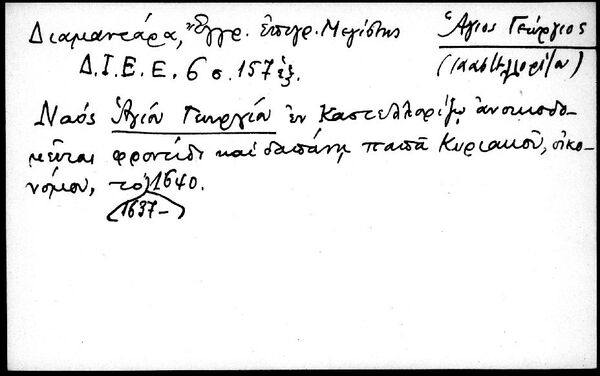 Διαμαντάρα, Ἔγγρ. ἐπιγρ. Μεγίστης
Ἅγιος Γεώργιος
Δ.Ι.Ε.Ε. 6 σ. 157 ἑξ.
(Καστελλορίζο)
Ναός Ἁγίου Γεωργίου ἐν Καστελλορίζῳ ἀνοικοδο-
μεῖται φροντίδι καί δαπάνῃ παπᾶ Κυριακοῦ, οἰκο-
νόμου, τό 1640.
1637-